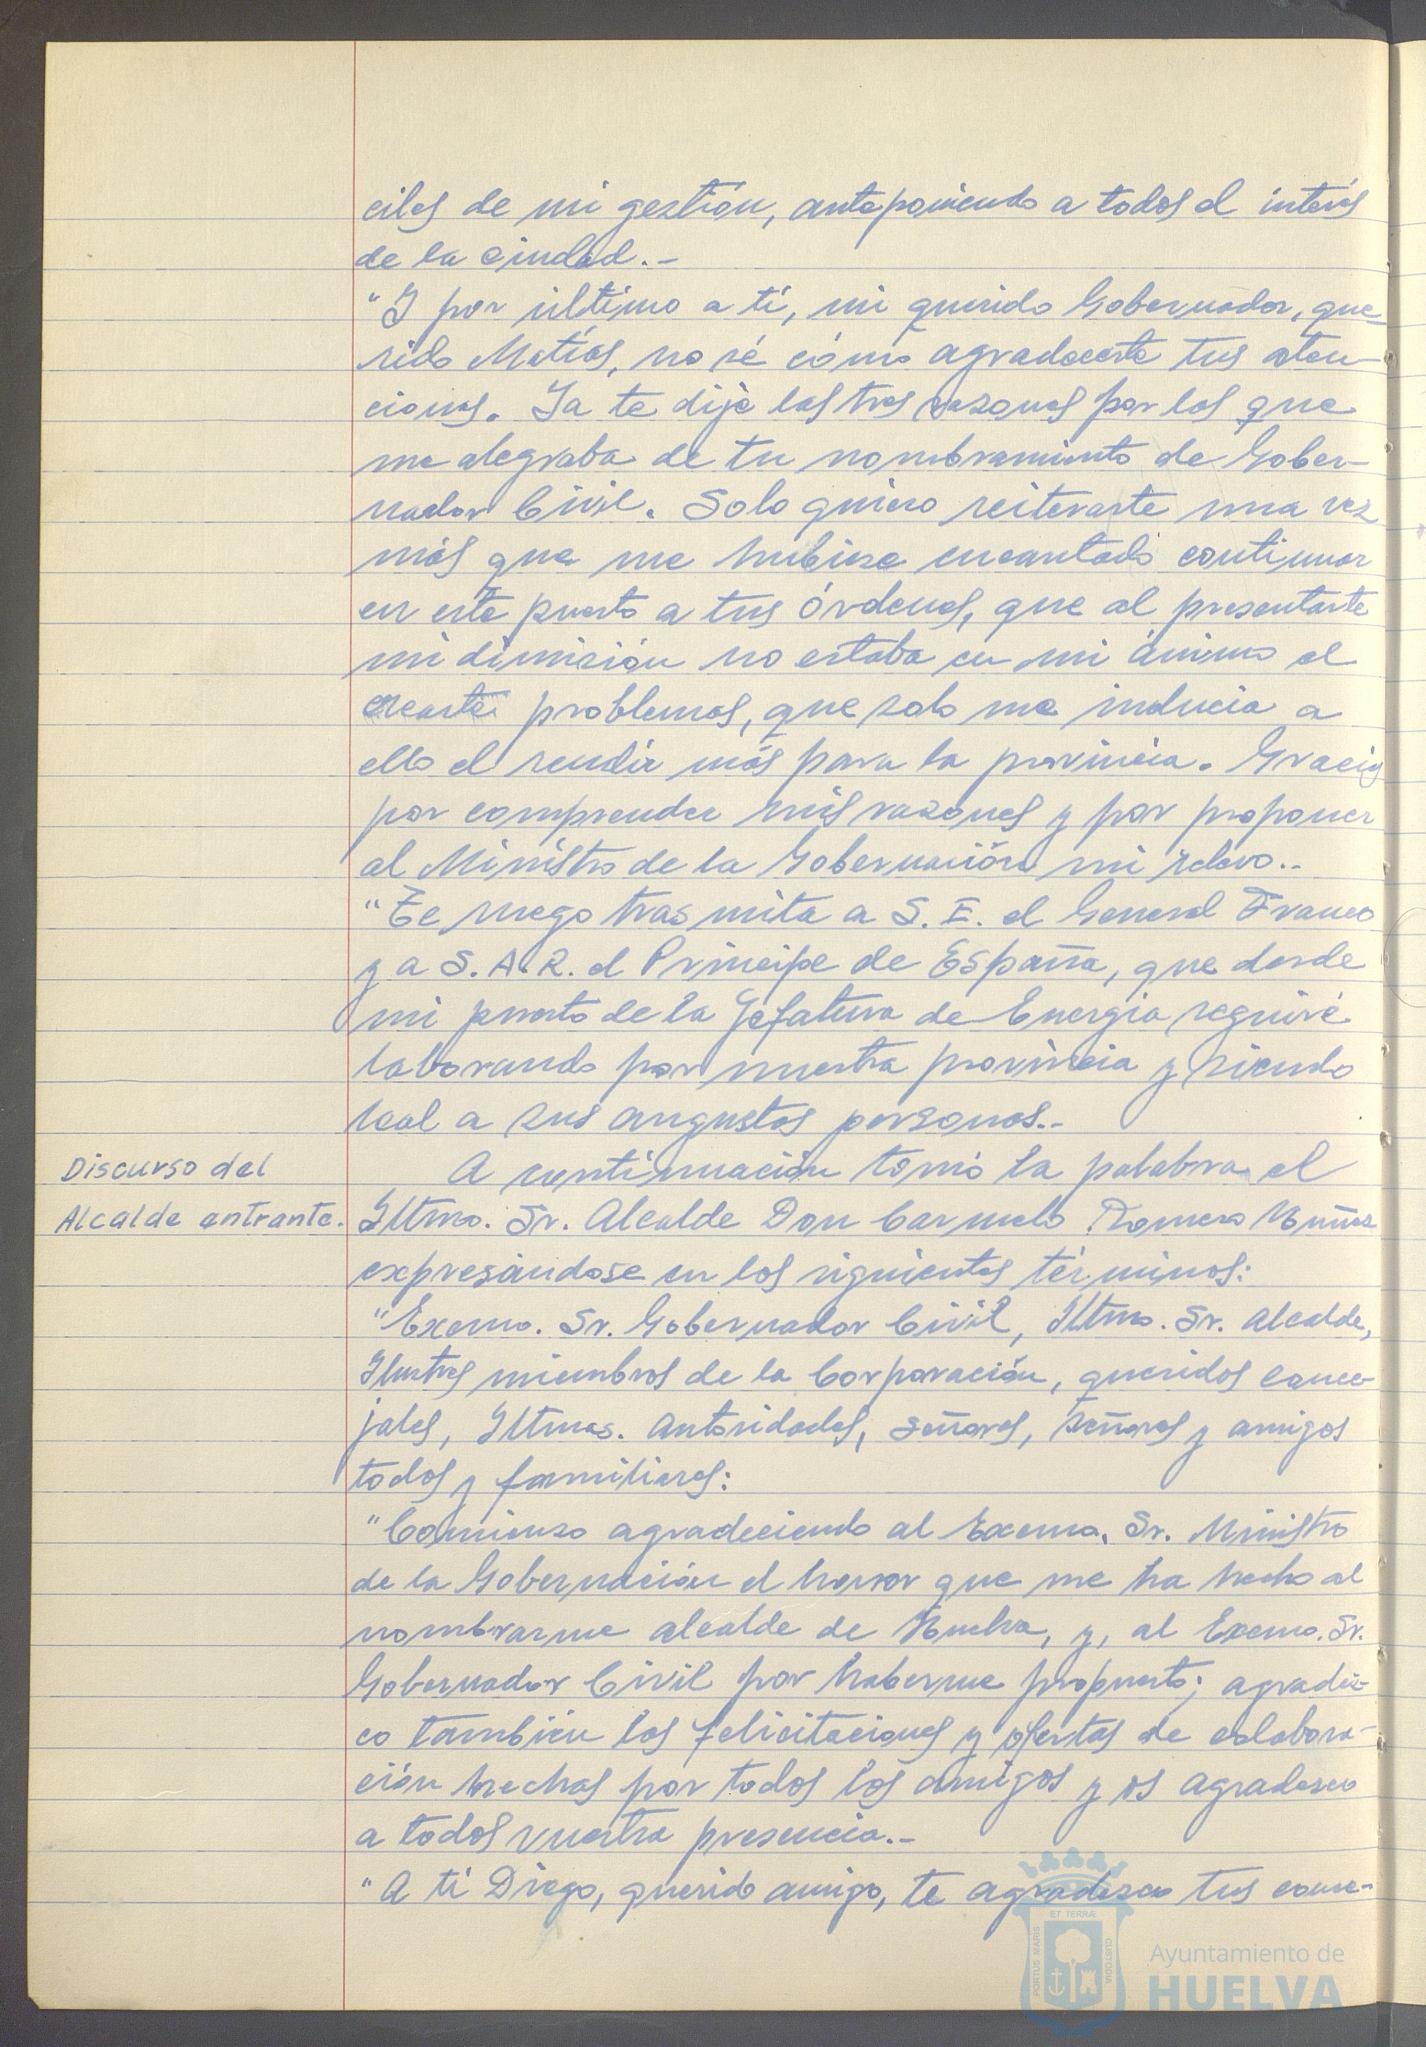 ciles de mi gestión, anteponiendo a todos el interés
de la ciudad.-
"Y por último a ti, mi querido Gobernador, que-
rido Matías, no sé cómo agradecerte tus aten-
ciones. Ya te dije las tres razones por las que
me alegraba de tu nombramiento de Gober-
nador Civil. Solo quiero reiterarte una vez
más que me hubiese encantado continuar
en este puesto a tus órdenes, que al presentarte
mi dimisión no estaba en mi ánimo el
crearte problemas, que solo me inducia a
ello el rendir más para la provincia. Gracias
por comprender mis razones y por proponer
al Ministro de la Gobernación mi relevo.-
"Te ruego trasmita a S. E. el General Franco
y a S.A.R. el Príncipe de España, que desde
mi puesto de la Jefatura de Energia seguiré
laborando por nuestra provincia y siendo
leal a sus augustas personas.-
Discurso del
Alcalde entrante.
A continuación tomó la palabra el
Iltmo. Sr. Alcalde Don Carmelo Romero Nuñez
expresándose en los siguientes términos:
"Excmo. Sr. Gobernador Civil, Iltmo. Sr. Alcalde,
Ilustres miembros de la Corporación, queridos conce-
jales, Iltmas. Autoridades, señoras, señores y amigos
todos y familiares:
"Comienzo agradeciendo al Excmo. Sr. Ministro
de la Gobernación el honor que me ha hecho al
nombrarme alcalde de Huelva, y, al Excmo. Sr.
Gobernador Civil por haberme propuesto; agradez-
co también las felicitaciones y ofertas de colabora-
ción hechas por todos los amigos y os agradezco
a todos vuestra presencia.-
"A ti Diego, querido amigo, te agradezco tus conse-
PORTUS MARIS ET TERRÆ CUSTODIA
Ayuntamiento de
HUELVA